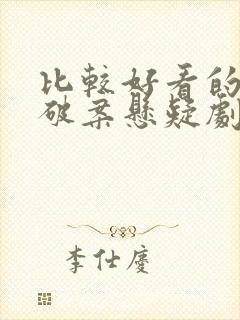 比較好看的
破案懸疑劇
李仕慶